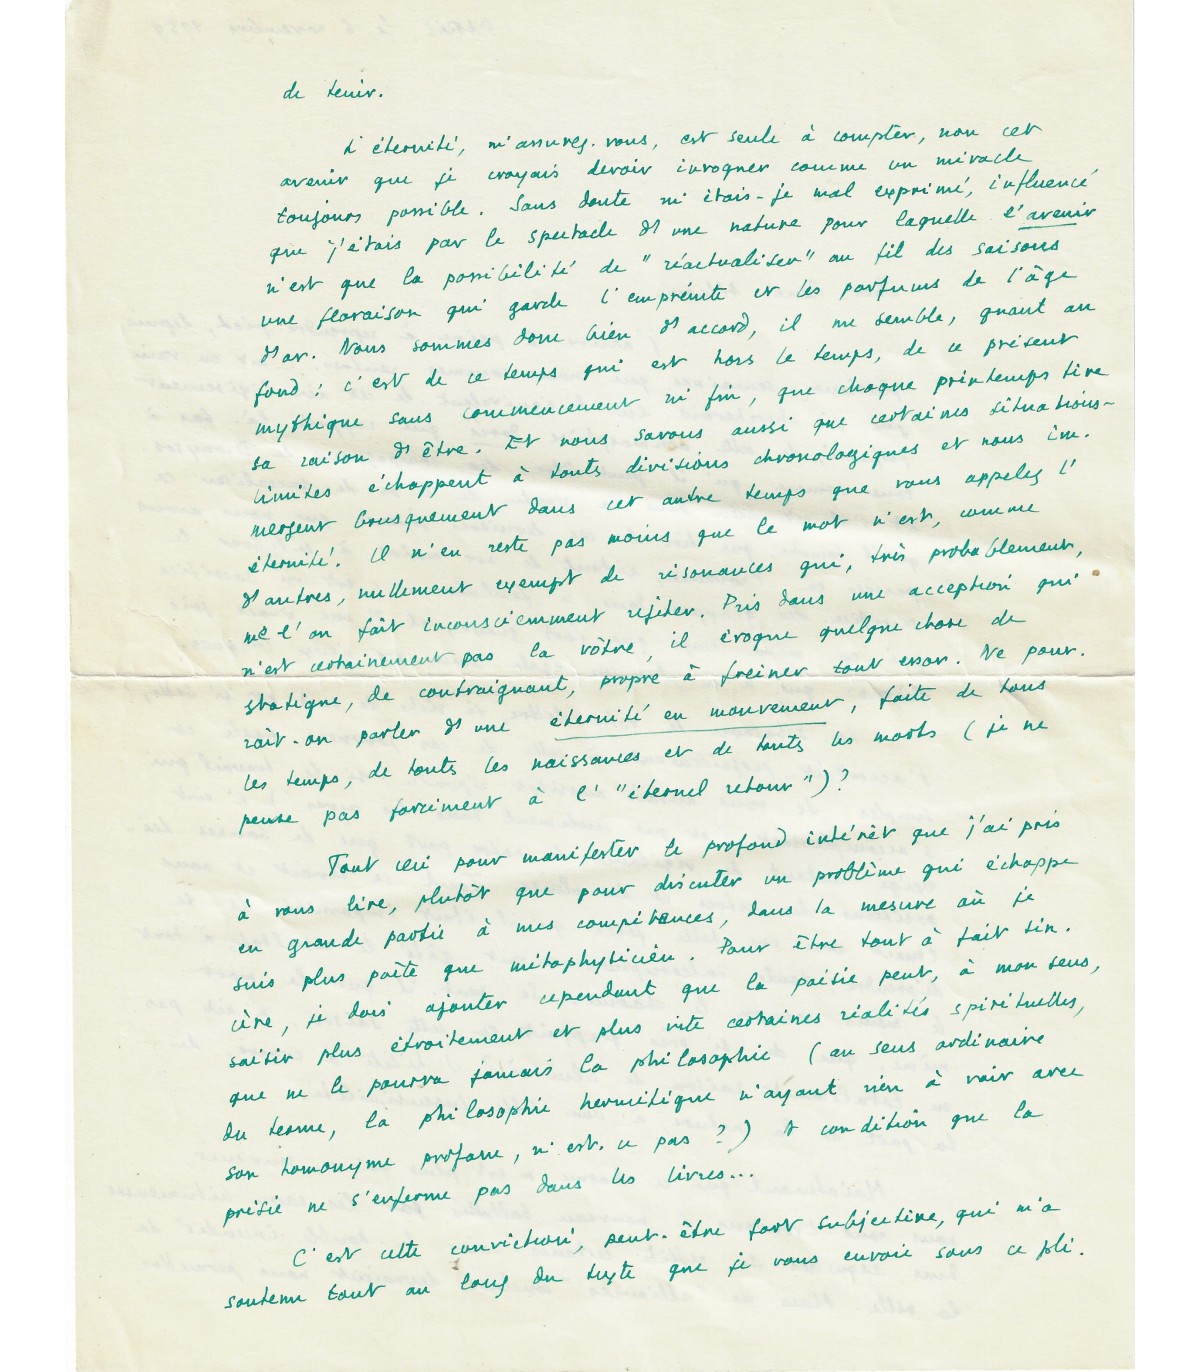 de tenir.
L'éternité, m'assurez-vous, est seule à compter, non cet
avenir que je croyais devoir invoquer comme un miracle
toujours possible. Sans doute m'étais-je mal exprimé, influencé
que j'étais par le spectacle d'une nature pour laquelle l'avenir
n'est que la possibilité de "réactualiser" au fil des saisons
une floraison qui garde l'empreinte et les parfums de l'âge
d'or. Nous sommes donc bien d'accord, il me semble, quant au
fond : c'est de ce temps qui est hors le temps, de ce présent
mythique sans commencement ni fin, que chaque printemps tire
sa raison d'être. Et nous savons aussi que certaines situations-
limites échappent à toutes divisions chronologiques et nous im-
mergent brusquement dans cet autre temps que vous appelez l'
éternité. Il n'en reste pas moins que le mot n'est, comme
d'autres, nullement exempt de résonances qui, très probablement,
me l'on fait inconsciemment rejeter. Pris dans une acception qui
n'est certainement pas la vôtre, il évoque quelque chose de
statique, de contraignant, propre à freiner tout essor. Ne pour-
rait-on parler d'une éternité en mouvement, faite de tous
les temps, de toutes les naissances et de toutes les morts (je ne
pense pas forcément à l'"éternel retour") ?
Tout ceci pour manifester le profond intérêt que j'ai pris
à vous lire, plutôt que pour discuter un problème qui échappe
en grande partie à mes compétences, dans la mesure où je
suis plus poète que métaphysicien. Pour être tout à fait sin-
cère, je dois ajouter cependant que la poésie peut, à mon sens,
saisir plus étroitement et plus vite certaines réalités spirituelles,
que ne le pourra jamais la philosophie (au sens ordinaire
du terme, la philosophie hermétique n'ayant rien à voir avec
son homonyme profane, n'est-ce pas ?) A condition que la
poésie ne s'enferme pas dans les livres...
C'est cette conviction, peut-être fort subjective, qui m'a
soutenu tout au long du texte que je vous envoie sous ce pli.